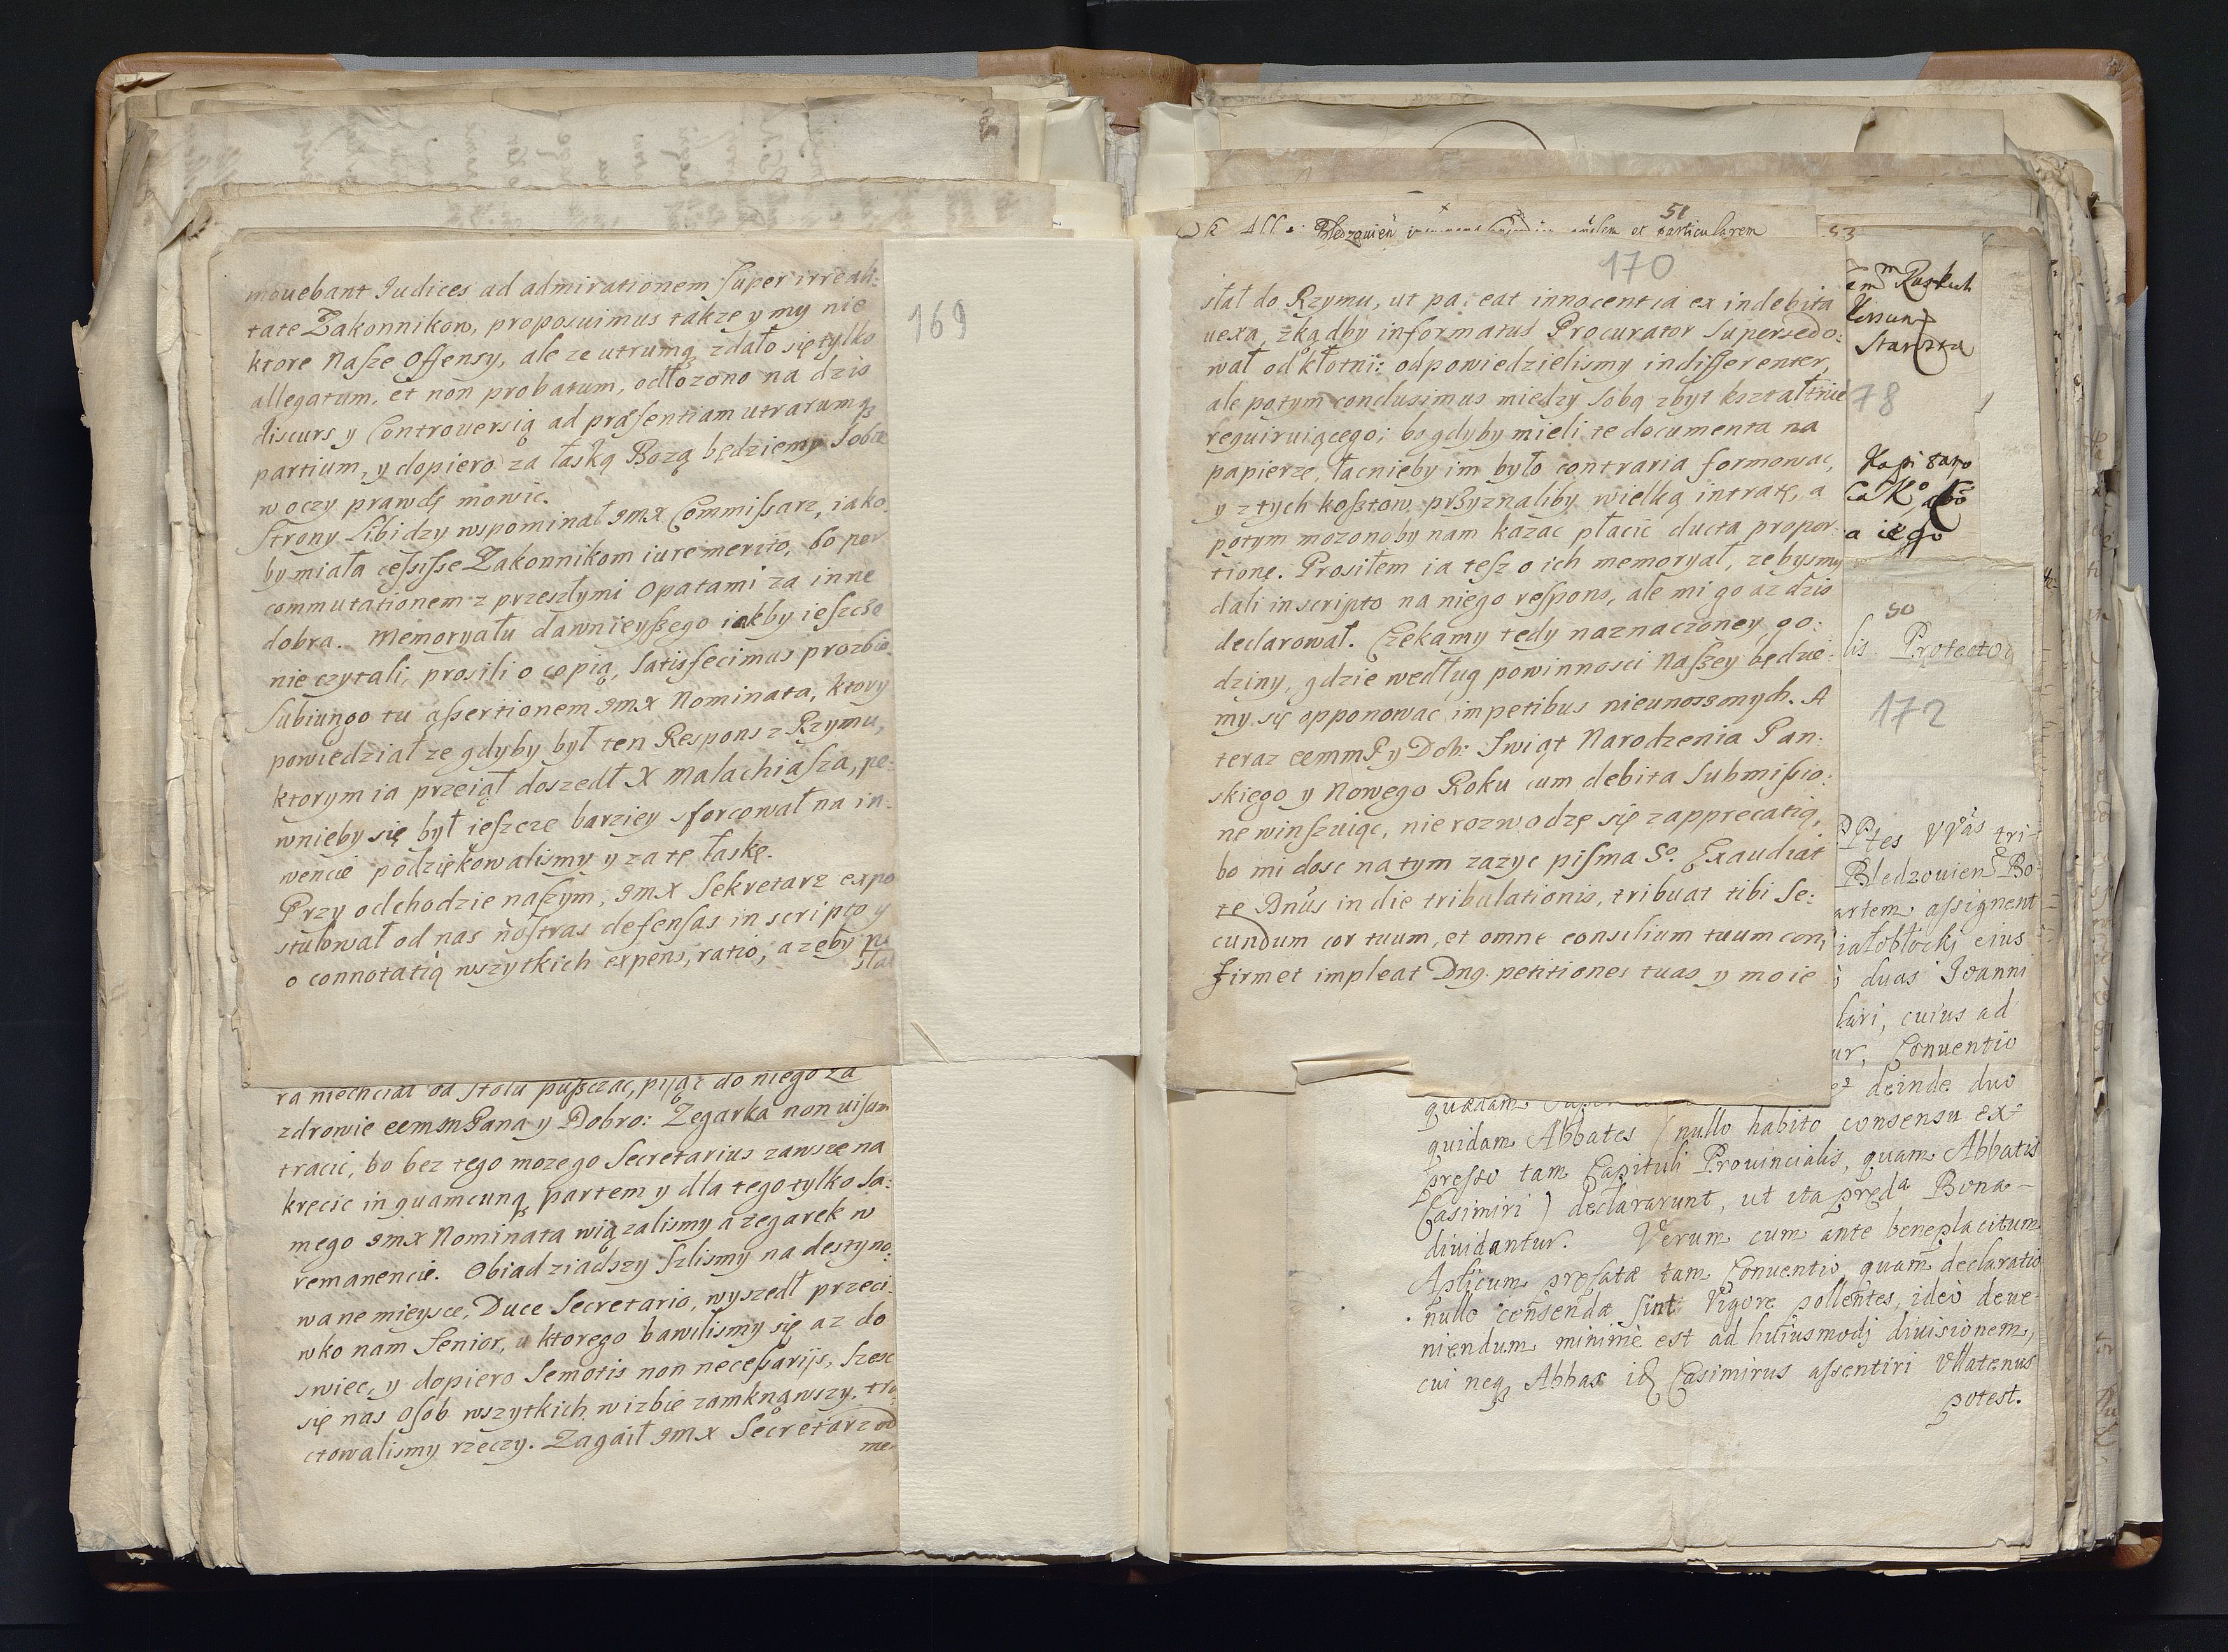 mouebant Iudices ad admirationem super irreali:
tate Zakonnikow, proposuimus takze y my nie
ktore Nasze Offensy, ale ze utrumq zdało się tylko
allegatum, et non probatum, odłozono na dzis
discurs y Controuersią ad præsentiam utrarumq
partium, y dopiero za łaską Bozą będziemy sobie
w oczy prawdę mowic.
Strony Libidzy wspominał JmX Commissarz, iako
by miała cessisse Zakonnikom iure merito, bo per
commutationem z przeszłymi Opatami za inne
dobra. Memoryału dawnieyszego iakby ieszcze
nie czytali, prosili o copią, satisfecimus prozbie.
Subiungo tu assertionem JmX Nominata, ktory
powiedział ze gdyby był ten Respons z Rzymu,
ktorym ia przeiął doszedł X Malachiasza, pe:
wnieby się był ieszcze barziey sforcował na in:
wencie podziękowalismy y za tę łaskę.
Przy odchodzie naszym, JmX Sekretarz expo
stulował od nas nostras defensas in scripto y
o connotatią wszytkich expens, ratio, azeby po
słał
169
ra niechciał od stołu puszczac, piiąc do niego za
zdrowie eemmPana y Dobro: Zegarka non uisum
tracic, bo bez tego moze go Secretarius zawsze na
kręcic in quamcunq partem y dla tego tylko sa:
mego JmX Nominata wiązalismy a zegarek w
remanencie. Obiad ziadszy szlismy na destyno:
wane mieysce, Duce Secretario, wyszedł przeci:
wko nam Senior, u ktorego bawilismy się az do
swiec, y dopiero Semotis non necessarijs, szesc
się nas Osob wszytkich w izbie zamknąwszy, tra
ctowalismy rzeczy. Zagaił JmX Secretarz od
me
51
Bledzouien et particularem
170
słał do Rzymu, ut pateat innocentia ex indebita
uexa, zkądby informatus Procurator supersedo:
wał od kłotni: odpowiedzielismy indifferenter,
ale potym conclusimus miedzy sobą zbyt kształtnie
requiruiącego; bo gdyby mieli te documenta na
papierze, łacnieby im było contraria formowac,
y z tych kosztow przyznaliby wielką intratę, a
potym mozonoby nam kazac płacic ducta propor
tionę. Prosiłem ia tesz o ich memoryał, zebysmy
dali in scripto na niego respons, ale mi go az dzis
declarował. Czekamy tedy naznaczoney go:
dziny, gdzie według powinnosci Naszey będzie:
my się opponowac impetibus nieunoszonych. A
teraz eemmP y Dob: Swiąt Narodzenia Pan:
skiego y Nowego Roku cum debita submissio:
ne winszuiąc, nie rozwodzę się z apprecatią,
bo mi dosc na tym zazyc pisma So. Exaudiat
te Dnus in die tribulationis, tribuat tibi se:
cundum cor tuum, et omne consilium tuum con:
firmet impleat Dnq petitiones tuas y moie
53
78
a iego
50
lis Protector
172
PPtes tri-
Bledzouien Bo-
artem assignent
iałobłocki eius
duas Ioanni
lari, cuius ad
ur, Conuentio
deinde duo
quædam
quidam Abbates / nullo habito consensu ex=
presso tam Capituli Prouincialis, quam Abbatis
Casimiri ) declararunt, ut ita preda Bona-
diuidantur. Verum cum ante beneplacitum
Aplicum prefatæ tam Conuentio quam declaratio
nullo censendæ sint Vigore pollentes, ideò deue-
niendum minimè est ad huiusmodj diuisionem,
cui neq Abbas id Casimirus assentiri Vllatenus
potest.